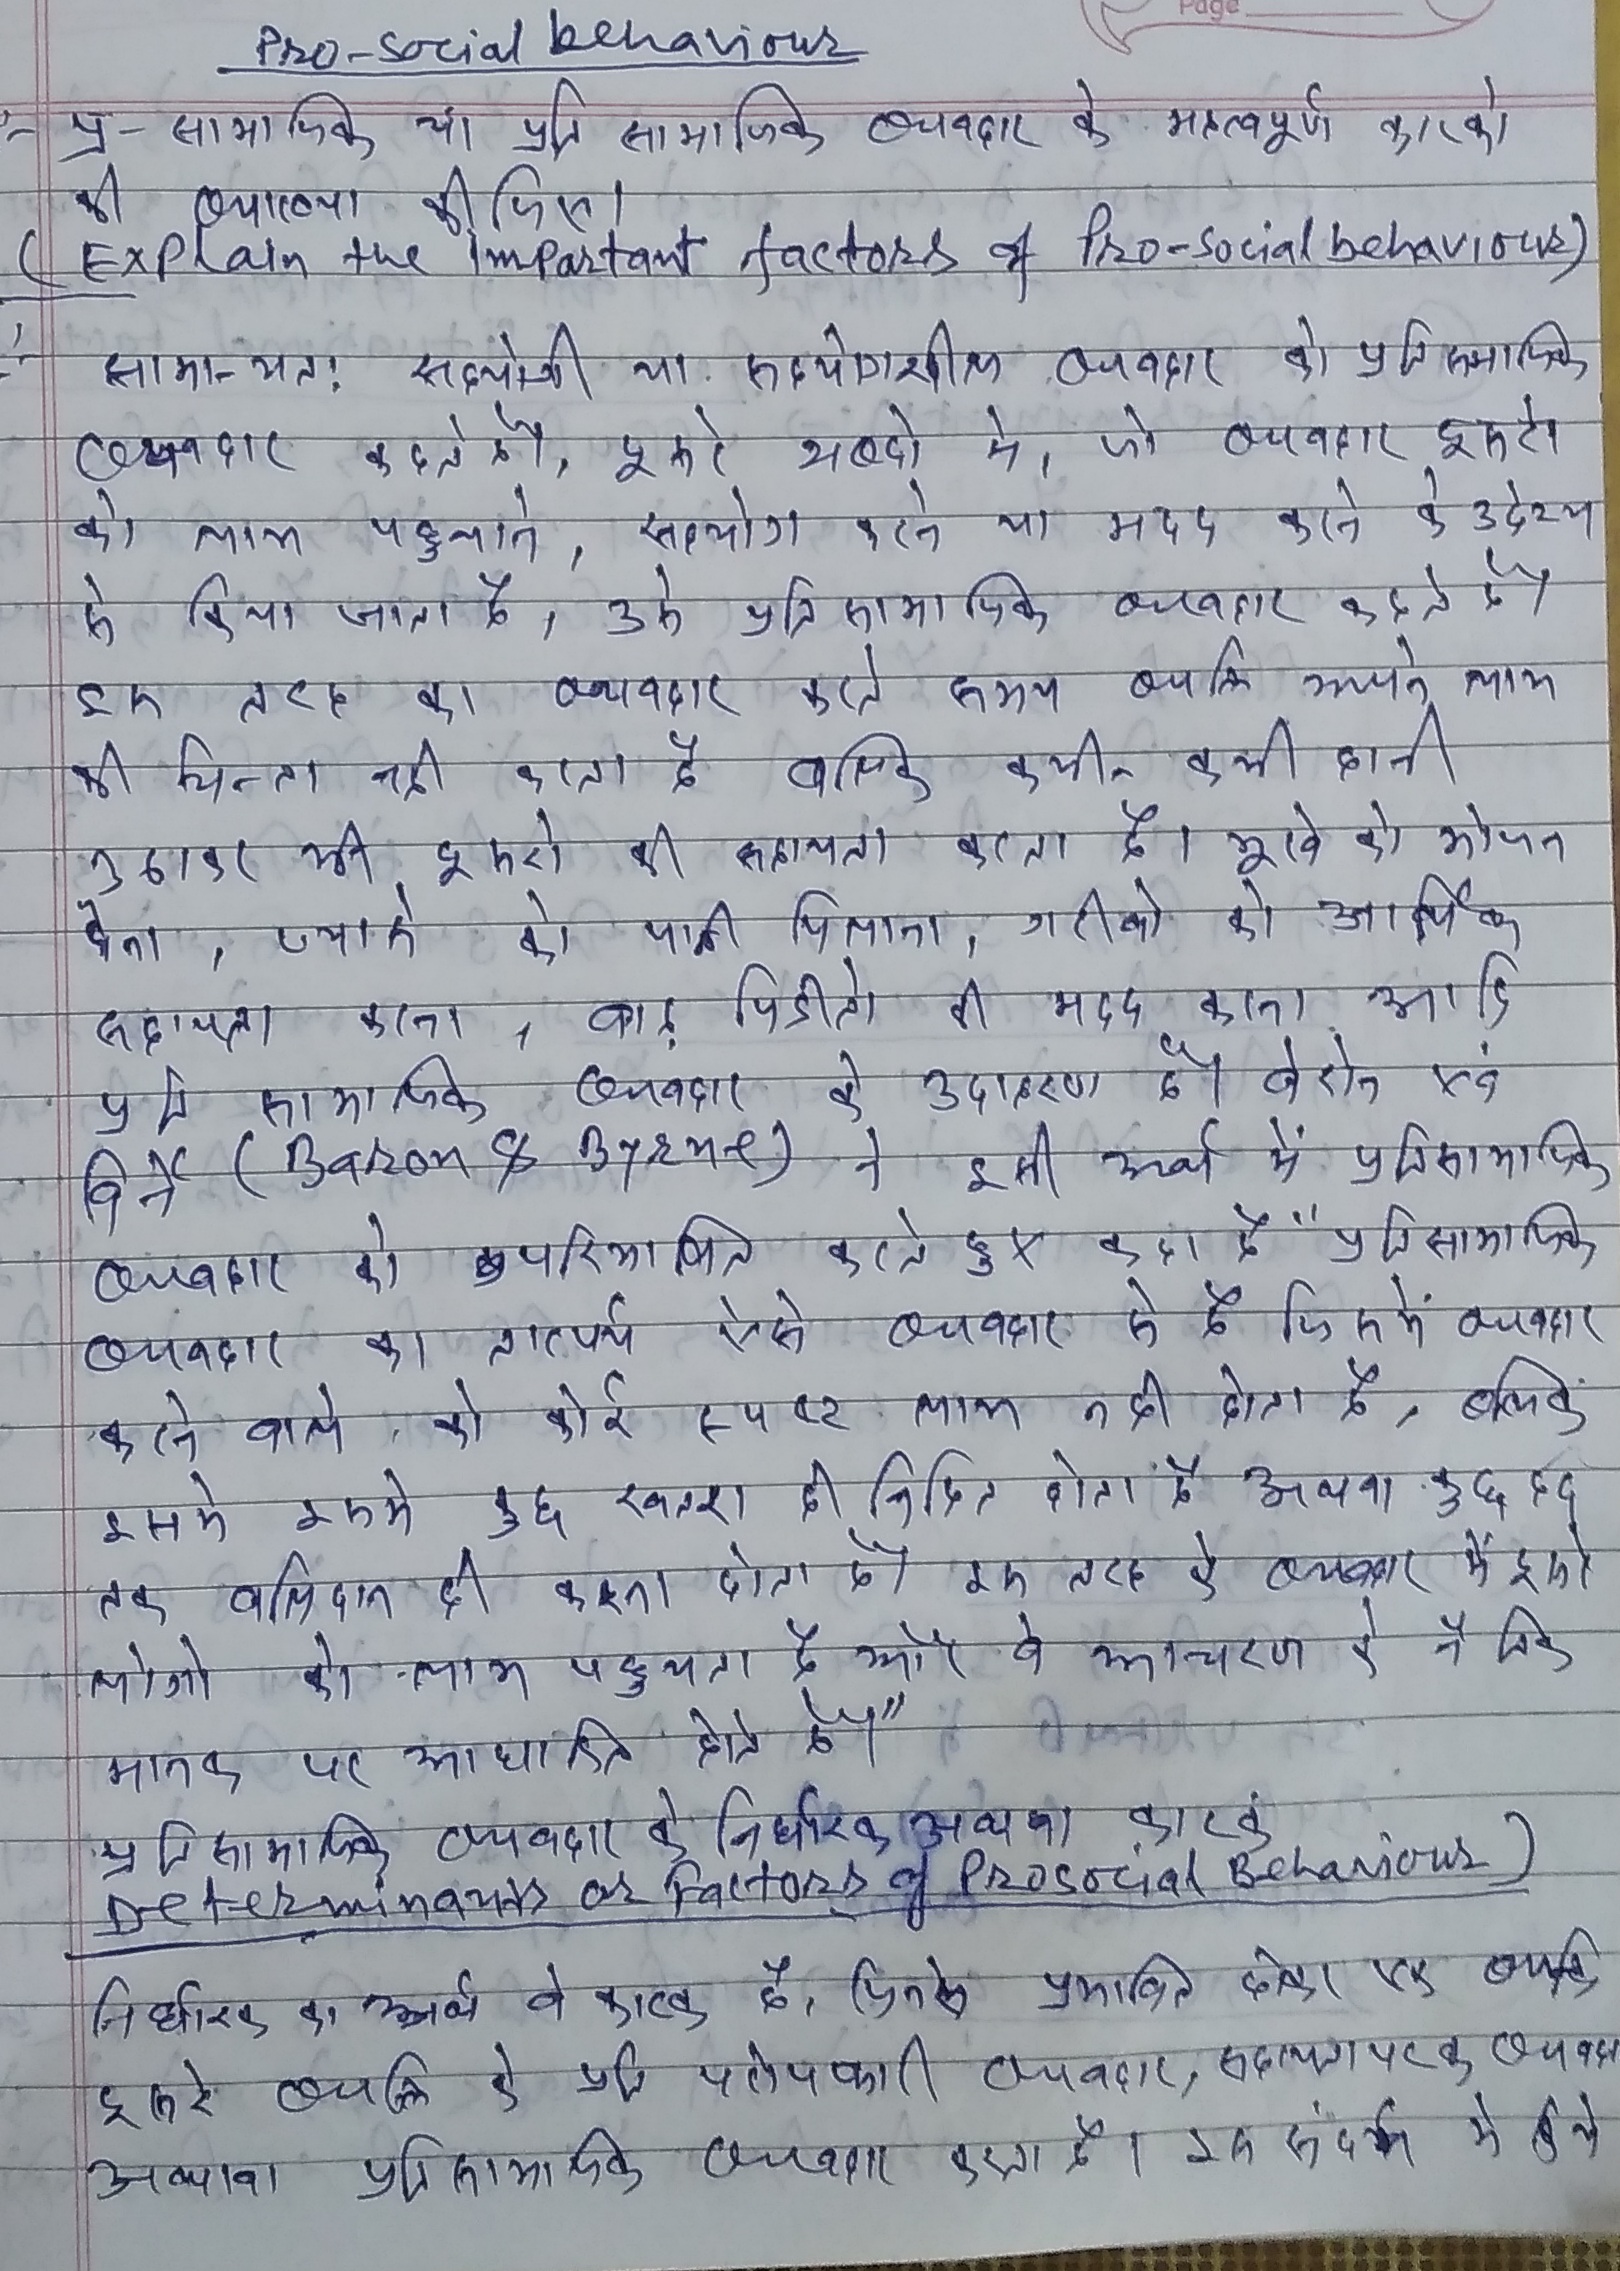 Page
Pro-social behaviour
:- प्र-सामाजिक या प्रति सामाजिक व्यवहार के महत्वपूर्ण कारको
की व्याख्या कीजिए।
(Explain the Important factors of Pro-social behaviour)
:- सामान्यतः सहयोगी या सहयोगशील व्यवहार को प्रतिसमाजिक
व्यवहार कहते हैं, दूसरे शब्दो मे, जो व्यवहार दूसरो
को लाभ पहुचाने, सहयोग करने या मदद करने के उदेश्य
से किया जाता है, उसे प्रति सामाजिक व्यवहार कहते हैं।
इस तरह का व्यवहार करते समय व्यक्ति अपने लाभ
की चिन्ता नही करता है बल्कि कभी-कभी हानी
उठाकर भी दूसरो की सहायता करता है। भूखे को भोजन
देना, प्यासे को पानी पिलाना, गरीबो को आर्थिक
सहायता करना, बाढ़ पिडीतो की मदद करना आदि
प्रति सामाजिक व्यवहार के उदाहरण हैं। बेरोन एवं
बिर्ने (Baron & Byrne) ने इसी अर्थ में प्रतिसामाजिक
व्यवहार को परिभाषित करते हुए कहा है "प्रतिसामाजिक
व्यवहार का तात्पर्य ऐसे व्यवहार से है जिसमें व्यवहार
करने वाले को कोई स्पष्ट लाभ नही होता है, बल्कि
इसमे इसमे कुछ खतरा ही निहित होता है अथवा कुछ हद
तक बलिदान ही करना होता है। इस तरह के व्यवहार में दूसरे
लोगो को लाभ पहुचता है और वे आचरण के नैतिक
मानक पर आधारित होते हैं।"
प्रतिसामाजिक व्यवहार के निर्धारक अथवा कारक
Determinants or Factors of Prosocial Behaviour)
निर्धारक का अर्थ वे कारक है, जिनसे प्रभावित होकर एक व्यक्ति
दूसरे व्यक्ति के प्रति परोपकारी व्यवहार, सहायतापरक व्यवहा
अथवा प्रतिसामाजिक व्यवहार करता है। इस संदर्भ मे